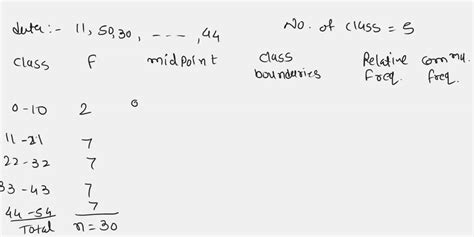 data:- 11, 50, 30, - - - , 44 No. of class = 5
class F midpoint class boundaries Relative Freq. commu. freq.
0-10 2 0
11-21 7
22-32 7
33-43 7
44-54 7
Total n=30